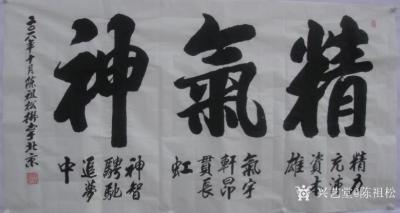 精
氣
神
精力
充沛
资本
雄
氣宇
軒昂
貫長
虹
神智
騁馳
追夢
中
年十月陈祖松撰书于北京
兴艺堂@陈祖松